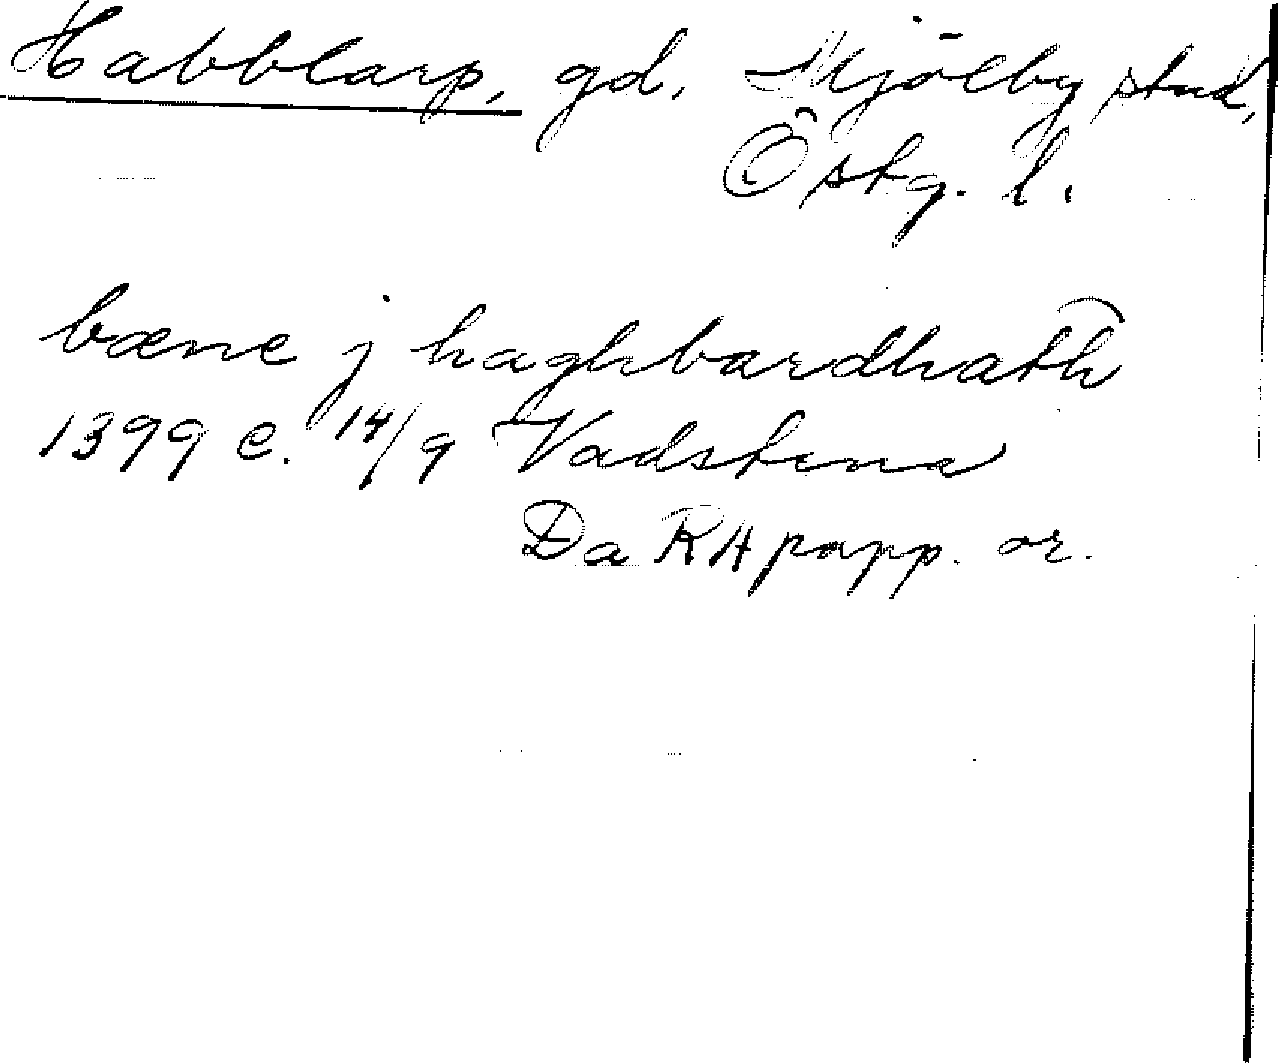 Habblarp, gd. Mjölby stad,
Östg. l.
bœne j haghbardhath
1399 e. 14/9 Vadstena
Da RA papp. or.